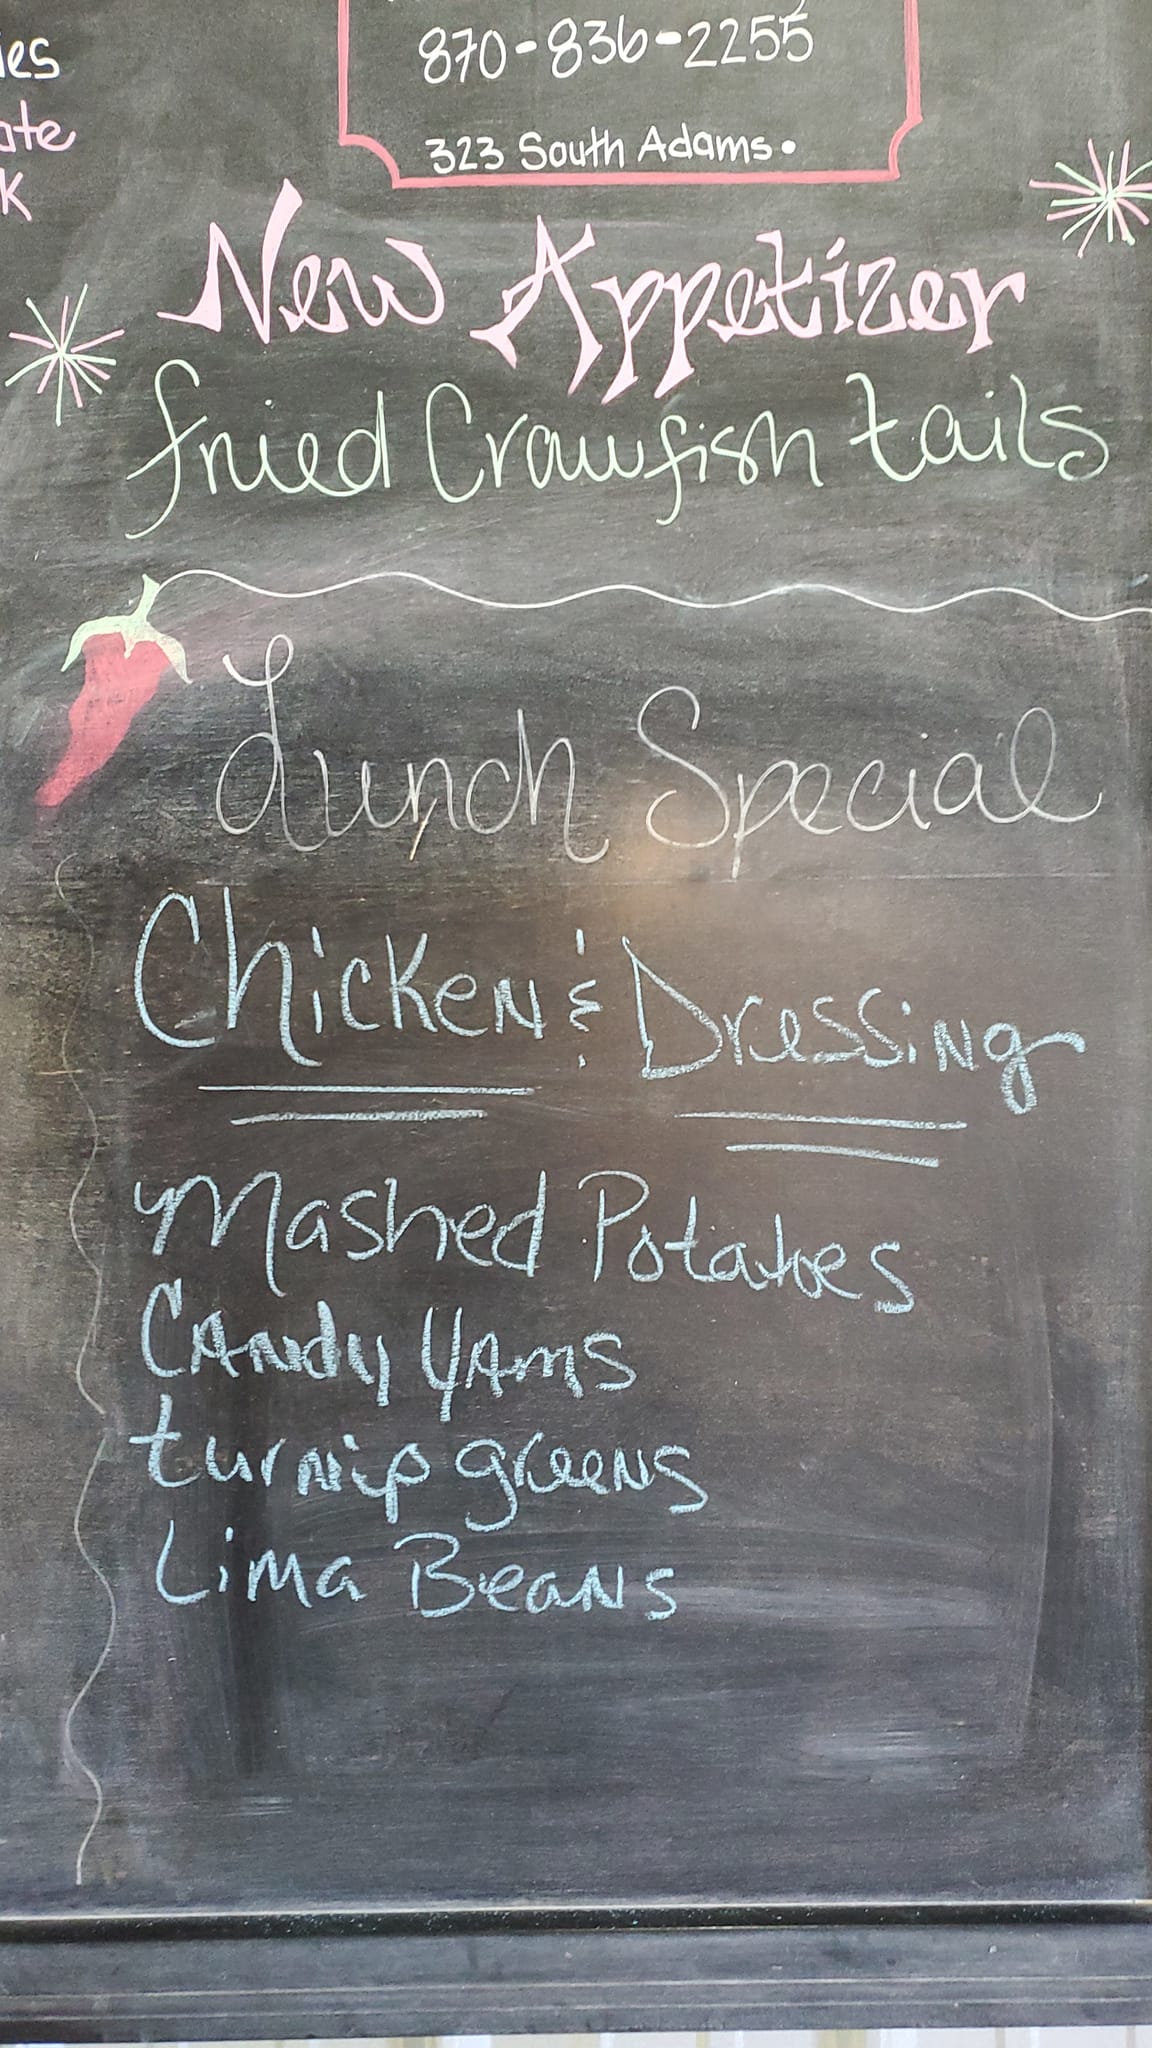 870-836-2255
323 South Adams.
New Appetizer
fried Crawfish tails
Lunch Special
Chicken & Dressing
Mashed Potatoes
Candy Yams
turnip greens
Lima Beans